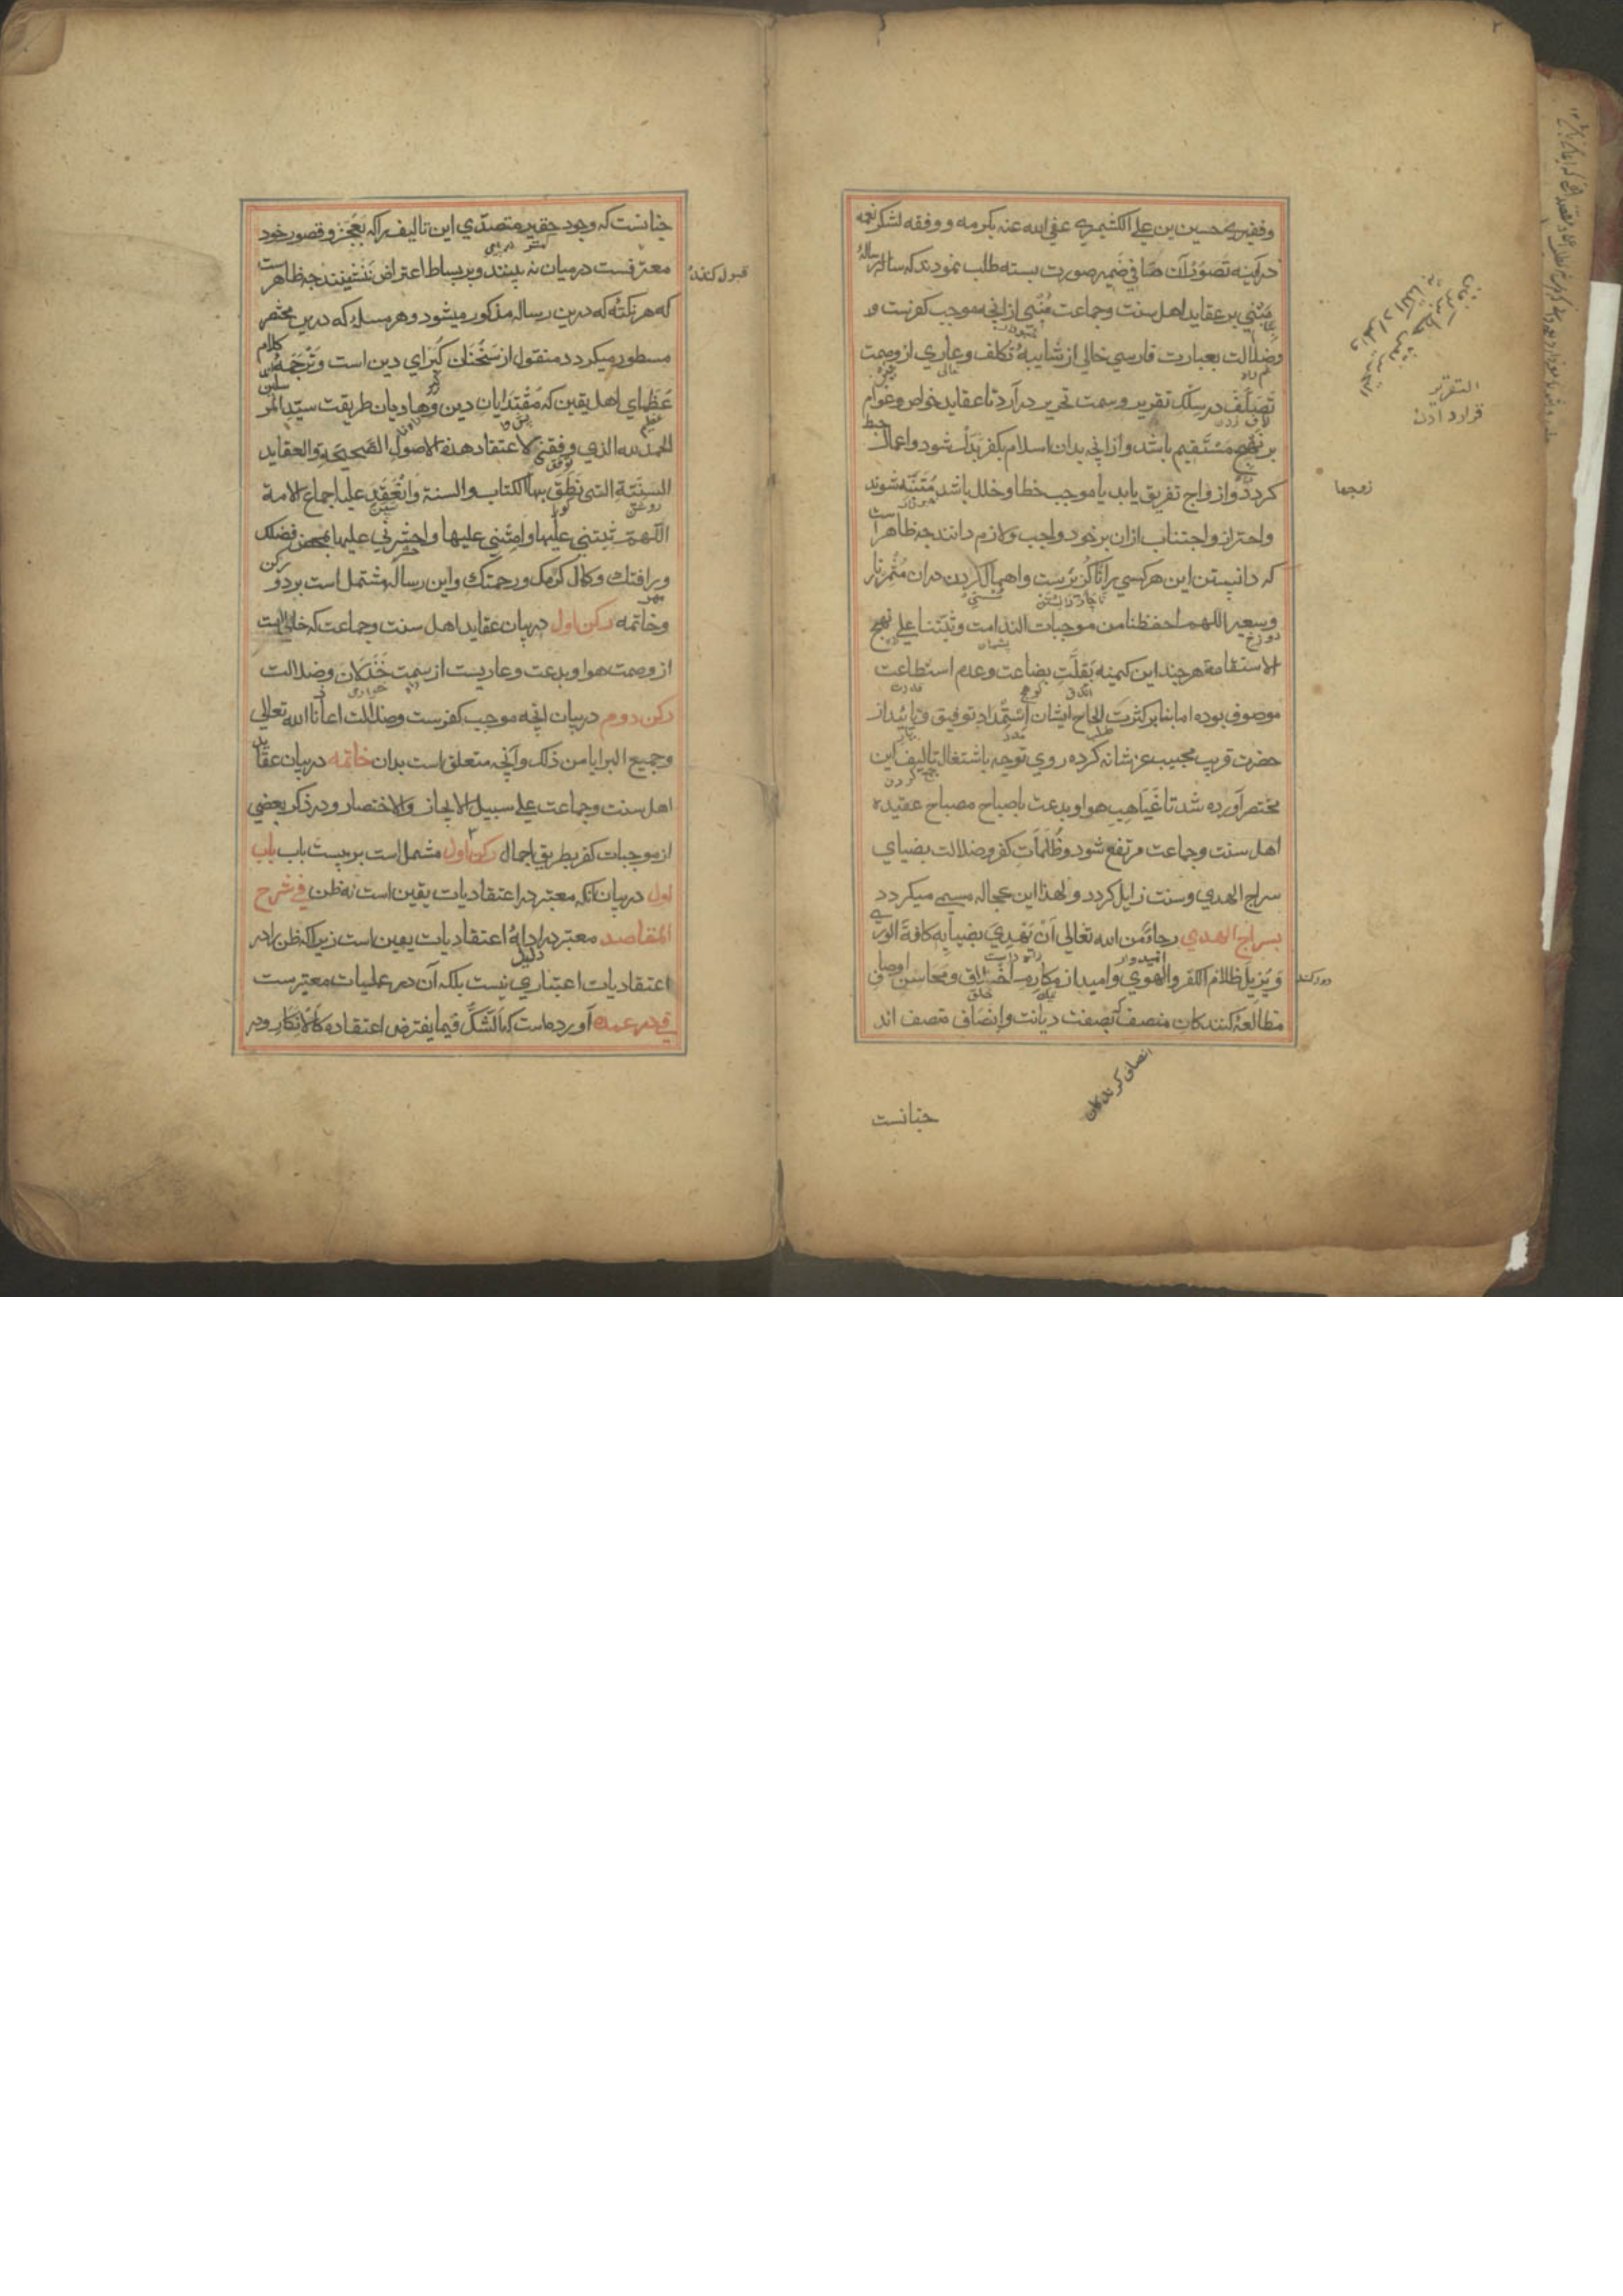 وفقيري حسين بن علي الكشميري عفي الله عنه بكرمه ووفقه لشكر نعمه
در آينه تصور آن صافي ضمير صورت بسته طلب نمودند كه رساله
مبني بر عقايد اهل سنت وجماعت منبي از آنچه موجب كفرست و
وضلالت بعبارت فارسي خالي از شايبه تكلف وعاري از وصمت
تصلف در سلك تقرير وسمت تحرير در آرد تا عقايد خواص وعوام
بر نهج مستقيم باشد واز آنچه بدان اسلام بكفر بدل شود واعمال حبط
كردد وازواج تفريق يابد يا موجب خطا وخلل باشد متنبه شوند
واحتراز واجتناب ازان بر خود واجب ولازم دانند چه ظاهر است
كه دانستن اين هر كسي را ناگزيرست واهمال كردن دران مثمر نار
وسعير اللهم احفظنا من موجبات الندامت وثبتنا علي نهج
الاستقامة هر چند اين كمينه بقلت بضاعت وعدم استطاعت
موصوف بوده اما بنا بر كثرت الحاح ايشان استمداد توفيق وتاييد از
حضرت قريب مجيب عز شانه كرده روي توجه باشتغال تاليف اين
مختصر آورده شد تا غياهب هوا وبدعت باصباح مصباح عقيده
اهل سنت وجماعت مرتفع شود وظلمات كفر وضلالت بضياي
سراج الهدي وسنت زايل كردد ولهذا اين عجاله مسمي ميكردد
بسراج الهدي رجاء من الله تعالي ان يهدي بضيايه كافة الوري
ويزيل ظلام الكفر والهوي واميد از مكارم اخلاق ومحاسن اوصاف
مطالعه كنندكان منصف كه بصفت ديانت وانصاف متصف اند
التقرير
قرار دادن
زوجها
دور كند
انصاف كرندكان
چنانست
چنانست كه وجود حقير متصدي اين تاليف را كه بعجز وقصور خود
معترفست در ميان نه بينند وبر بساط اعتراض ننشينند چه ظاهر است
كه هر نكته كه درين رساله مذكور ميشود وهر مسله كه درين مختصر
مسطور ميكردد منقول از سخنان كبراي دين است وترجمه كلام
عظماي اهل يقين كه مقتدايان دين وهاديان طريقت سيد المرسلين
الحمد لله الذي وفقني لاعتقاد هذه الاصول الصحيحة والعقايد
السنية التي نطق بها الكتاب والسنة وانعقد عليها اجماع الامة
اللهم ثبتني عليها وامتني عليها واحشرني عليها بمحض فضلك
ورافتك وكمال كرمك ورحمتك واين رساله مشتمل است بر دو ركن
وخاتمه ركن اول در بيان عقايد اهل سنت وجماعت كه خالي است
از وصمت هوا وبدعت وعاريست از سمت خذلان وضلالت
ركن دوم در بيان آنچه موجب كفرست وضلالت اعاذنا الله تعالي
وجميع البرايا من ذلك وآنچه متعلق است بدان خاتمه در بيان عقايد
اهل سنت وجماعت علي سبيل الايجاز والاختصار ودر ذكر بعضي
از موجبات كفر بطريق اجمال ركن اول مشتمل است بر بيست باب باب
اول در بيان انكه معتبر در اعتقاديات يقين است نه ظن في شرح
المقاصد معتبر در ادله اعتقاديات يقين است زيرا كه ظن را در
اعتقاديات اعتباري نيست بلكه آن در عمليات معتبرست
آورده است كه الشك فيما يفترض اعتقاده كالانكار ودر
قبول كنند